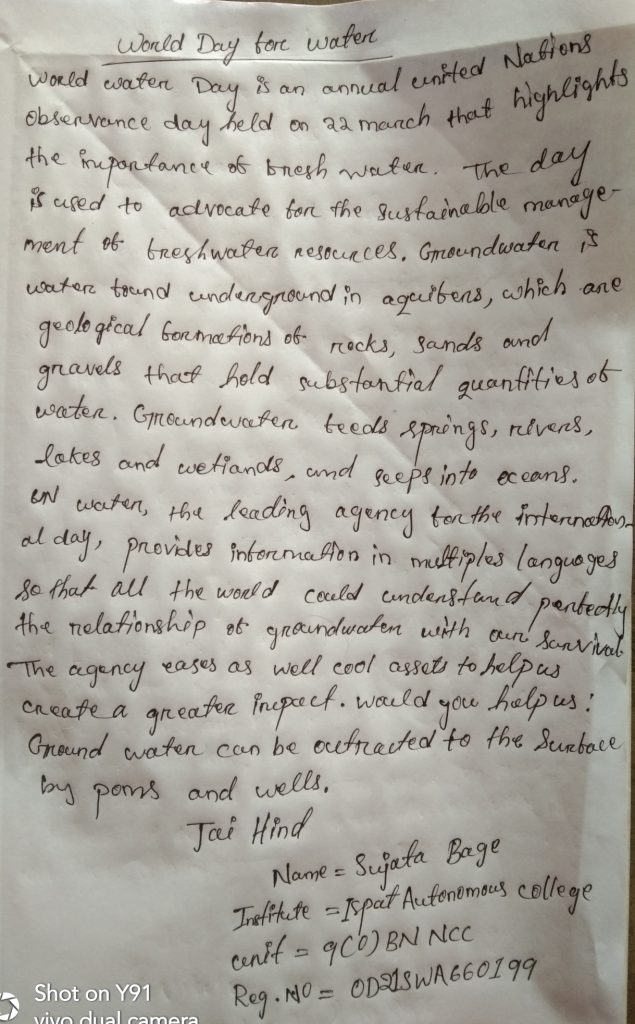 World Day for water
World water Day is an annual united Nations
Observance day held on 22 march that highlights
the importance of fresh water. The day
is used to advocate for the sustainable manage-
ment of freshwater resources. Groundwater is
water found underground in aquifers, which are
geological formations of rocks, sands and
gravels that hold substantial quantities of
water. Groundwater feeds springs, rivers,
lakes and wetlands, and seeps into oceans.
UN water, the leading agency for the internation-
al day, provides information in multiples languages
so that all the world could understand perfectly
the relationship of groundwater with our survival
The agency eases as well cool assets to help us
create a greater impact. would you help us!
Ground water can be outracted to the surface
by poms and wells.
Jai Hind
Name = Sujata Bage
Institute = Ispat Autonomous college
unit = 9(O) BN NCC
Reg. NO = OD21SWA660199
Shot on Y91
vivo dual camera